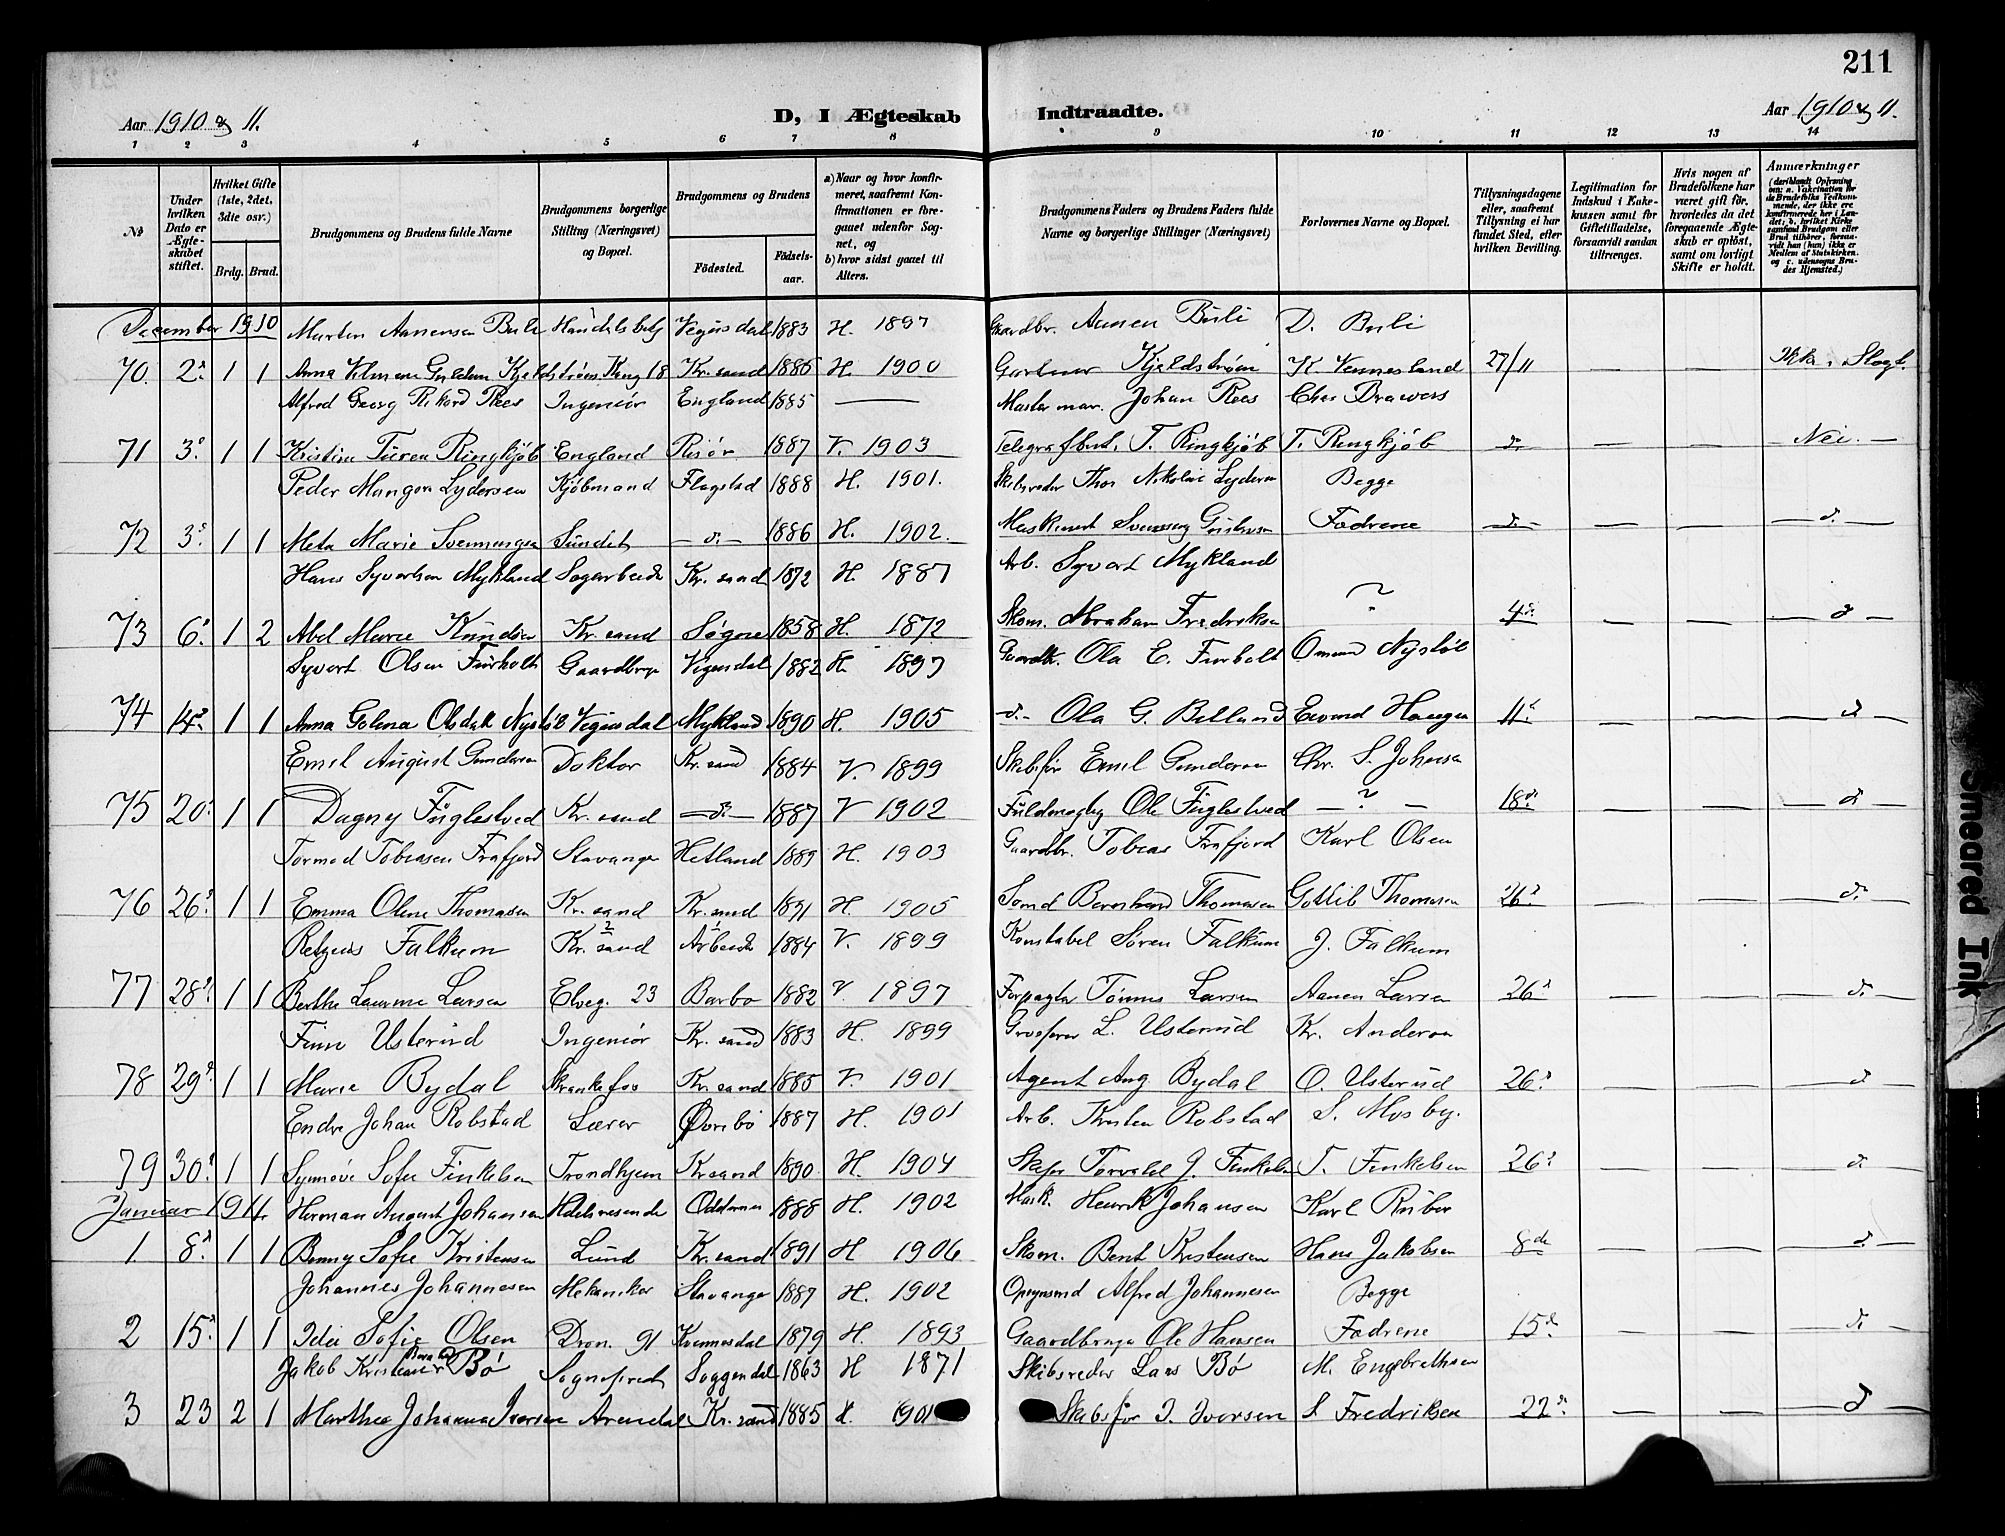 211
Aar 1910 & 11. D, I Ægteskab Indtraadte. Aar 1910 & 11.
1 2 3 4 5 6 7 8 9 10 11 12 13 14
№
Under hvilken Dato er Ægteskabet stiftet.
Hvilket Gifte (1ste, 2det, 3die osv.)
Brdg. Brud.
Brudgommens og Brudens fulde Navne
Brudgommens borgerlige Stilling (Næringsvei) og Bopæl.
Brudgommens og Brudens
Fødested. Fødselsaar.
a) Naar og hvor konfirmeret, saafremt Konfirmationen er foregaaet udenfor Sognet, og
b) hvor sidst gaaet til Alters.
Brudgommens Faders og Brudens Faders fulde Navne og borgerlige Stillinger (Næringsvei)
Forlovernes Navne og Bopæl.
Tillysningsdagene eller, saafremt Tillysning ei har fundet Sted, efter hvilken Bevilling.
Legitimation for Indskud i Enkekassen samt for Giftetilladelse, forsaavidt saadan tiltrænges.
Hvis nogen af Brudefolkene har været gift før, hvorledes da det foregaaende Ægteskab er opløst, samt om lovligt Skifte er holdt.
Anmærkninger
(deriblandt Oplysning om: a. Vakcination for de Brudefolks Vedkommende, der ikke ere konfirmerede her i Landet; b. hvilket Kirkesamfund Brudgom eller Brud tilhører, forsaavidt han (hun) ikke er Medlem af Statskirken, og c. udensogns Brudes Hjemsted.)
December 1910 Marten Aanensen Buli Handelsbetj Vegusdal 1883 H. 1897 Gaardbr. Aanen Buli D. Buli
70. 2. 1 1 Anna Kjeldstrøm Kong 18 Kr. sand 1886 H. 1900 Gartner Kjeldstrøm K. Vennesland 27/11 — — Ikke i Slægt.
Alfred Georg Rikard Rees Ingeniør England 1885 — Johan Rees Chas Drawers
71 3. 1 1 Kristine Turen Ringkjøb England Risør 1887 V. 1903 Telegrafbest. T. Ringkjøb T. Ringkjøb d. — — Nei. —
Peder Mangor Lydersen Kjøbmand Flagstad 1888 H. 1901. Skibsreder Thor Nikolai Lydersen Begge
72 3. 1 1 Meta Marie Svenningsen Sundet — d. — 1886 H. 1902. Fædrene — d. — — — d. —
Hans Syvertsen Mykland Sagarbeider Kr. sand 1872 H. 1887 Arb. Syvert Mykland
73 6. 1 2 Abel Marie Knudsen Kr. sand Søgne 1858 H. 1872 Skom. Abraham Fredriksen ? 4d. — — d —
Syvert Olsen Furholt Gaardbruger Vegusdal 1882 H 1897 Gaardbr. Ola E. Furholt Omund Nystøl
74 14. 1 1 Anna Golena Olsdatt Nystøl Vegusdal Mykland 1890 H. 1905 — d. — Ola G. Belland Eivind Haugen 11. — — d —
Emil August Gundersen Doktor Kr. sand 1884 V. 1899 Skibsfør Emil Gundersen Chr. S. Johnsen
75 20. 1 1 Dagny Fuglestved Kr. sand — d. — 1887 V 1902 Fuldmægtig Ole Fuglestved — ? — 18d. — — d. —
Tormod Tobiasen Frafjord Stavanger Hetland 1889 H. 1903 Gaardbr. Tobias Frafjord Karl Olsen
76 26. 1 1 Emma Oline Thomasen Kr. sand Kr. sand 1891 H 1905 Bernhard Thomasen Gottlib Thomasen 26. — — d. —
Falkum Kr. sand Arbeider 1884 V. 1899 Konstabel Søren Falkum J. Falkum
77 28. 1 1 Berthe Laumine Larsen Elveg. 23 Barbo 1882 V. 1897 Forpagter Tønnes Larsen Aanen Larsen 26. — — d. —
Finn Usterud Ingeniør Kr. sand 1883 H. 1899 L. Usterud Kr. Andersen
78 29. 1 1 Marie Bydal Skrankefos Kr. sand 1885 V. 1901 Agent Aug Bydal O. Usterud 26. — — d
Endre Johan Robstad Lærer Øvrebø 1887 H. 1901 Arb. Kristen Robstad S. Mosby.
79 30. 1 1 Synnøve Sofie Finkelsen Trondhjem Kr. sand 1890. H. 1904 Skfør Torvald J. Finkelsen T. Finkelsen 26. — — d.
Januar 1911. Herman August Johansen Hdelsreisende Oddernes 1888 H. 1902 Mask. Henrik Johansen Karl Ruber
1 8. 1 1 Benny Sofie Kristensen Lund Kr. sand 1891 H 1906 Skom. Bent Kristensen Hans Jakobsen 8de — — d. —
Johannes Johannesen Mekaniker Stavanger 1887 H. 1902 Opsynsmd Alfred Johannesen Begge
2 15. 1 1 Ida Sofie Olsen Dron. 91 Kvinnesdal 1879 H. 1893 Gaardbruger Ole Hansen Fædrene 15d. — — d. —
Jakob Kristian Bø Sogneprest Soggendal 1863 H 1871 Skibsreder Lars Bø M. Engebrethsen
3 23 2 1 Marthea Johanna Iversen Arendal Kr. sand 1885 H. 1901 Skibsfør J. Iversen S Fredriksen 22. — — d —
Smeared Ink